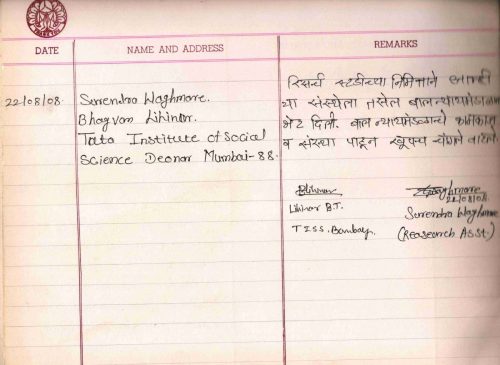 DATE
NAME AND ADDRESS
REMARKS
22/08/08
Surendra Waghmore.
Bhagvan Lihinar.
Tata Institute of Social
Science Deonar Mumbai-88.
रिसर्च स्टडीच्या निमित्ताने आम्ही
या संस्थेला तसेच बालन्यायमंडळास
भेट दिली. बाल न्यायमंडळाचे कामकाज
व संस्था पाहून खूपच चांगले वाटले.
Lihinar B.T.
T I S S. Bombay.
22/08/08.
Surendra Waghmore
(Reasearch Asst.)